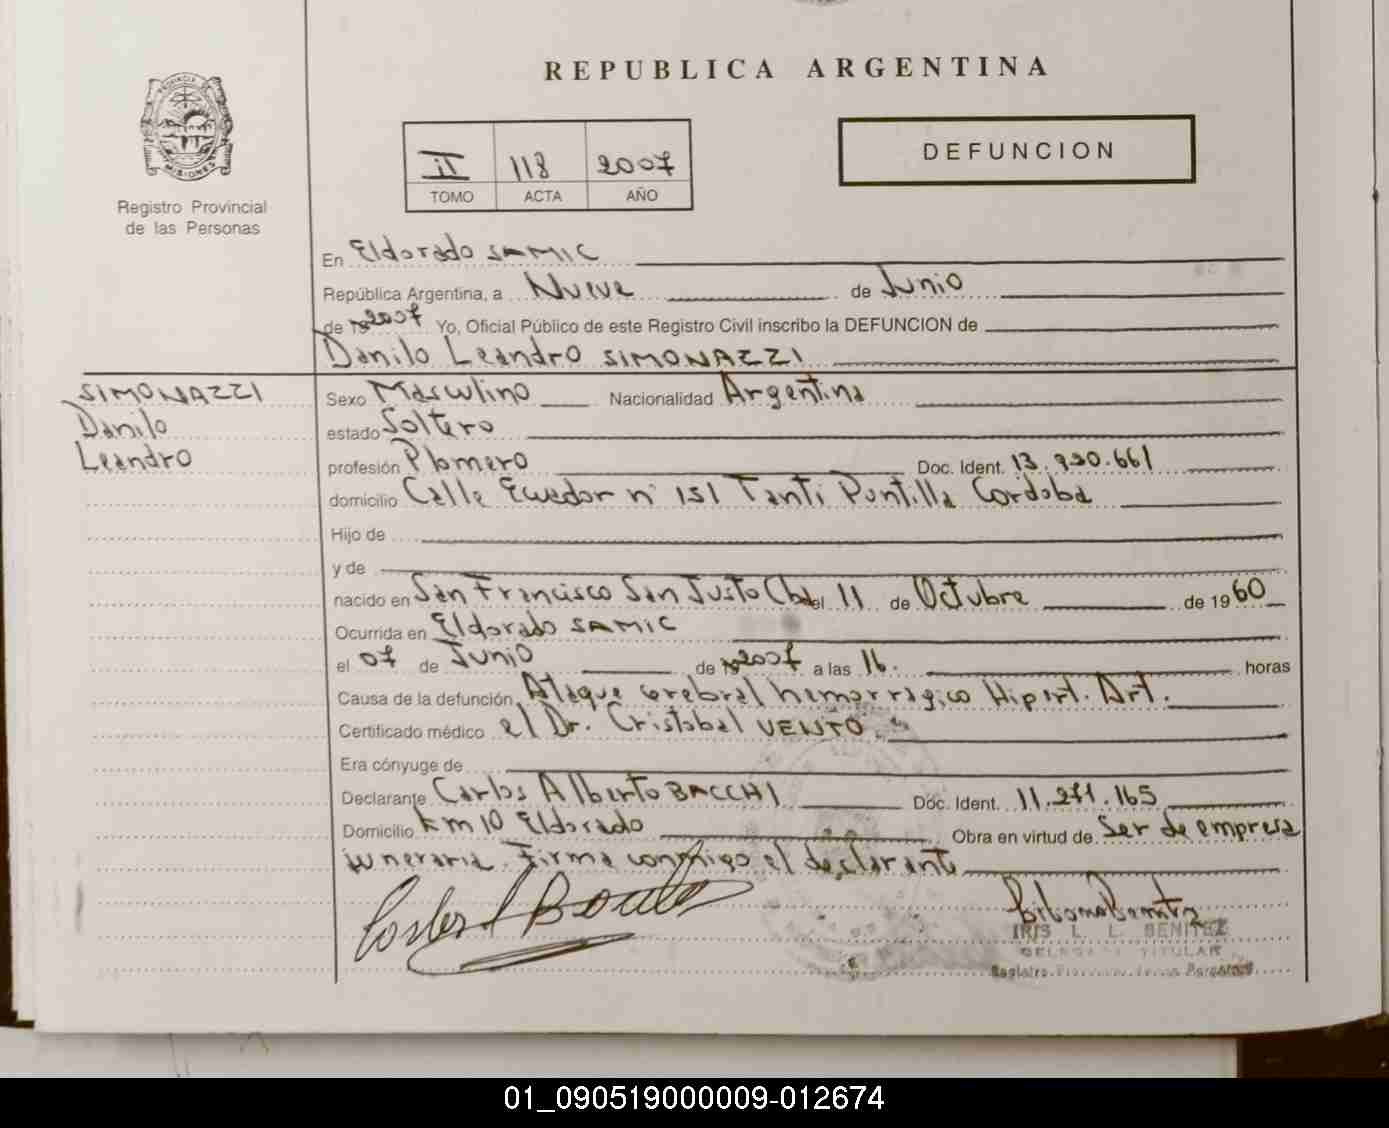 REPUBLICA ARGENTINA
PROVINCIA DE MISIONES
Registro Provincial
de las Personas
II 118 2007
TOMO ACTA AÑO
DEFUNCION
En Eldorado SAMIC
República Argentina, a Nueve de Junio
de 2007 Yo, Oficial Público de este Registro Civil inscribo la DEFUNCION de
Danilo Leandro SIMONAZZI
SIMONAZZI
Danilo
Leandro
Sexo Masculino Nacionalidad Argentina
estado Soltero
profesión Plomero Doc. Ident. 13.920.661
domicilio Calle Ecuador nº 151 Tanti Puntilla Cordoba
Hijo de
y de
nacido en San Francisco San Justo Cba el 11 de Octubre de 1960
Ocurrida en Eldorado SAMIC
el 07 de Junio de 2007 a las 16. horas
Causa de la defunción Ataque cerebral hemorragico Hipert. Art.
Certificado médico el Dr. Cristobal VENTO
Era cónyuge de
Declarante Carlos Alberto BACCHI Doc. Ident. 11.271.165
Domicilio km 10 Eldorado Obra en virtud de Ser de empresa
funeraria. Firma conmigo el declarante
IRIS L. L. BENITEZ
DELEGADA TITULAR
Registro Provincial de las Personas
01_090519000009-012674